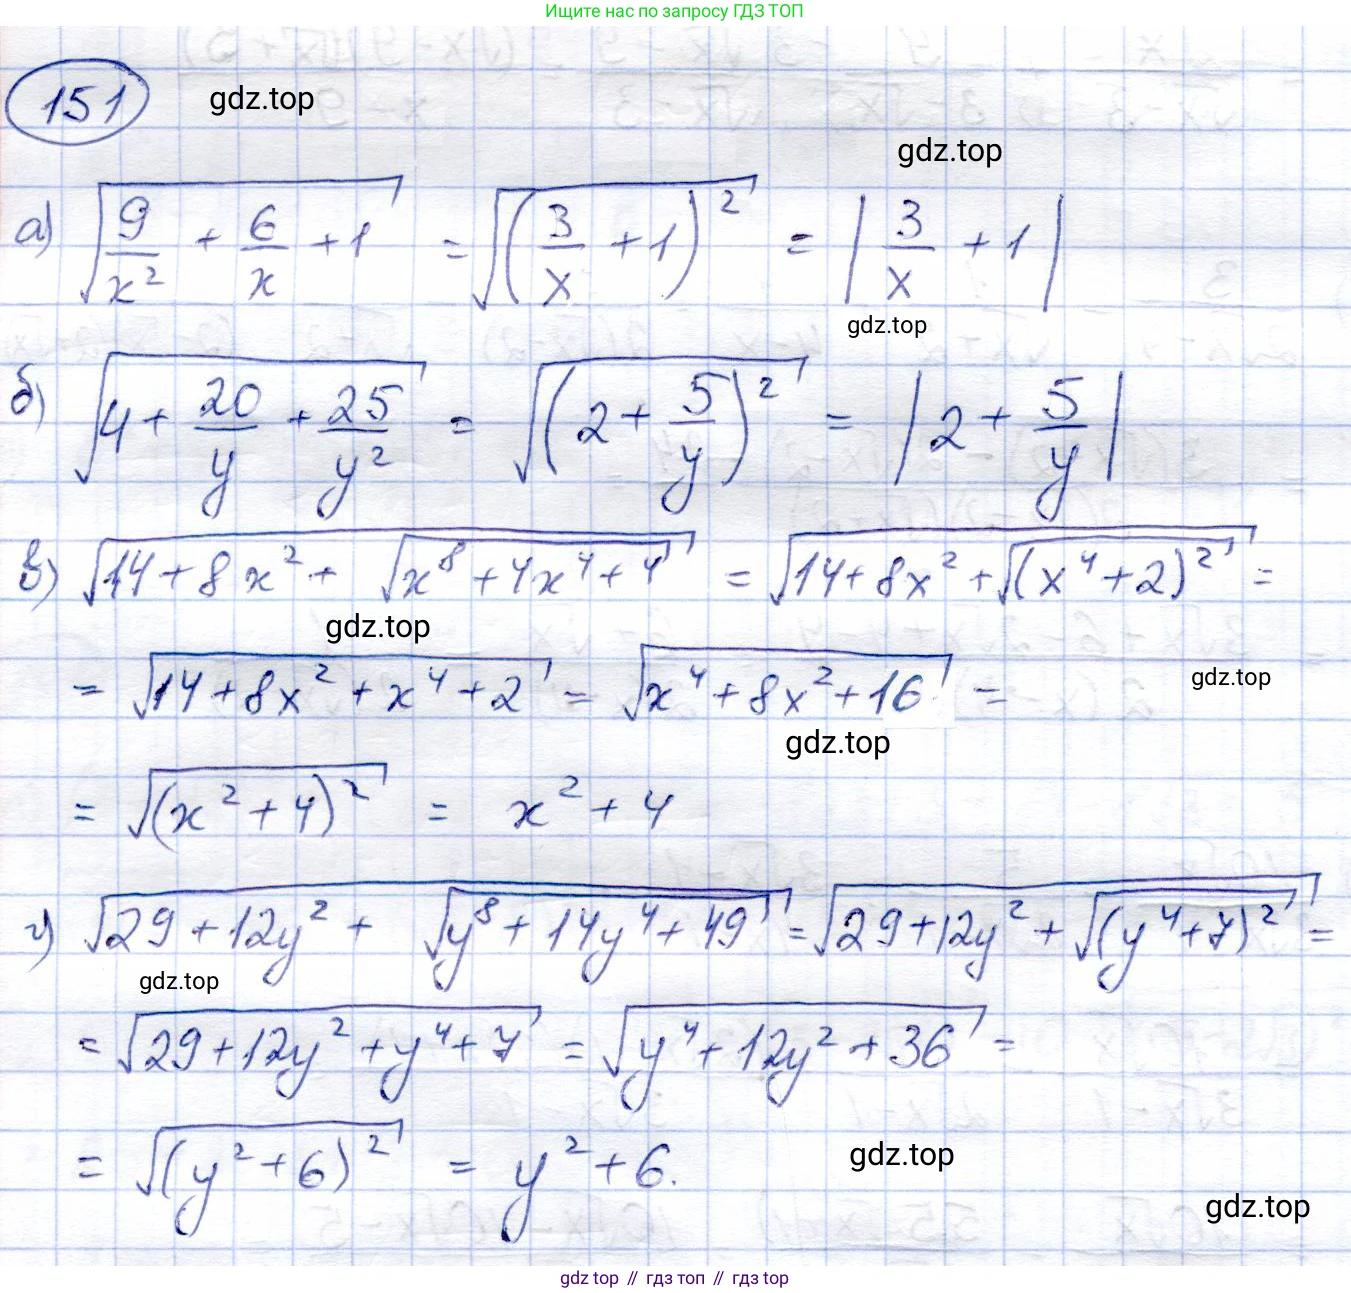 Ищите нас по запросу ГДЗ ТОП
151 gdz.top
gdz.top
а) √(9/x² + 6/x + 1) = √((3/x + 1)²) = |3/x + 1|
gdz.top
б) √(4 + 20/y + 25/y²) = √((2 + 5/y)²) = |2 + 5/y|
в) √(14 + 8x² + √(x⁸ + 4x⁴ + 4)) = √(14 + 8x² + √((x⁴ + 2)²)) =
gdz.top
= √(14 + 8x² + x⁴ + 2) = √(x⁴ + 8x² + 16) =
gdz.top
gdz.top
= √((x² + 4)²) = x² + 4
г) √(29 + 12y² + √(y⁸ + 14y⁴ + 49)) = √(29 + 12y² + √((y⁴ + 7)²)) =
gdz.top
= √(29 + 12y² + y⁴ + 7) = √(y⁴ + 12y² + 36) =
= √((y² + 6)²) = y² + 6.
gdz.top
gdz.top
gdz top // гдз топ // гдз top